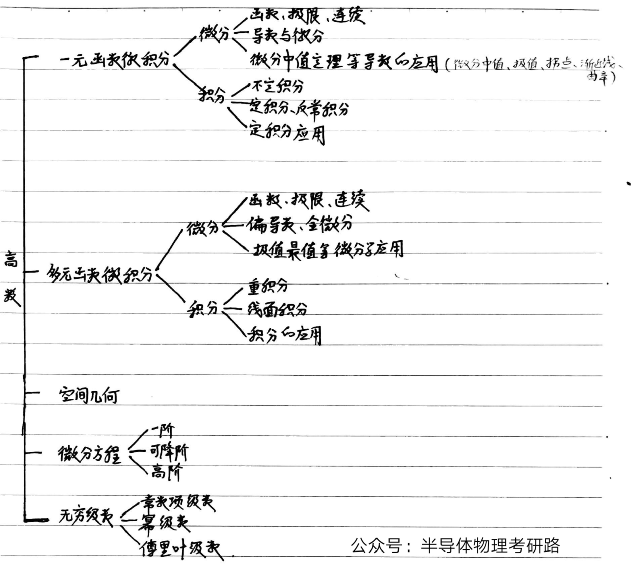 函数、极限、连续
微分
导数与微分
一元函数微积分
微分中值定理等导数的应用(微分中值、极值、拐点、渐近线、
曲率)
不定积分
积分
定积分、反常积分
定积分应用
函数、极限、连续
微分
偏导数、全微分
高
数
极值最值等微分学应用
多元函数微积分
重积分
积分
线面积分
积分的应用
空间几何
一阶
微分方程
可降阶
高阶
无穷级数
常数项级数
幂级数
傅里叶级数
公众号：半导体物理考研路